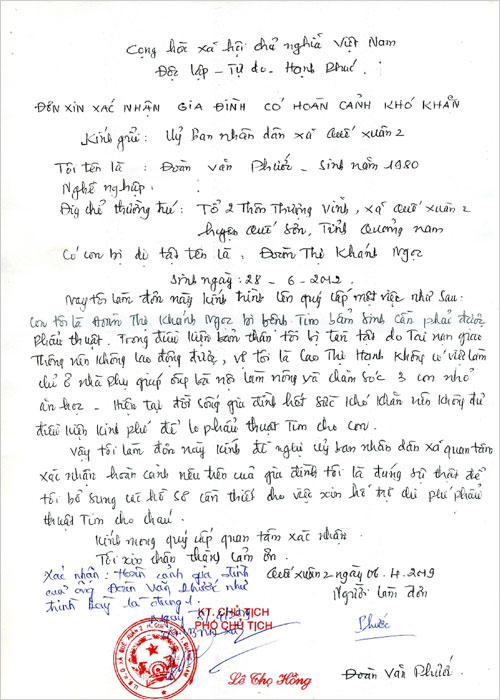 Cộng hòa xã hội chủ nghĩa Việt Nam
Độc lập - Tự do - Hạnh Phúc.
ĐƠN XIN XÁC NHẬN GIA ĐÌNH CÓ HOÀN CẢNH KHÓ KHĂN
Kính gửi: Uỷ ban nhân dân xã Quế Xuân 2
Tôi tên là : Đoàn Văn Phước - Sinh năm 1980
Nghề nghiệp:
Địa chỉ thường trú: Tổ 2 Thôn Thượng Vĩnh, xã Quế Xuân 2
huyện Quế Sơn, Tỉnh Quảng nam
Có con bị dị tật tên là : Đoàn Thị Khánh Ngọc
sinh ngày: 28 - 6 - 2012
Nay tôi làm đơn này kính trình lên quý cấp một việc như sau:
Con tôi là Đoàn Thị Khánh Ngọc bị bệnh Tim bẩm sinh cần phải được
Phẩu thuật. Trong điều kiện bản thân tôi bị tàn tật do Tai nạn giao
Thông nên không lao động được, vợ tôi là Cao Thị Hạnh không có việc làm
chỉ ở nhà Phụ giúp ông bà nội làm nông và chăm sóc 3 con nhỏ
ăn học - Hiện tại đời sống gia đình hết sức khó khăn nên không đủ
điều kiện kinh phí để lo phẩu thuật Tim cho con.
Vậy tôi làm đơn này kính đề nghị uỷ ban nhân dân xã quan tâm
xác nhận hoàn cảnh nêu trên của gia đình tôi là đúng sự thật để
tôi bổ sung hồ sơ cần thiết cho việc xin hỗ trợ chi phí phẩu
thuật Tim cho cháu.
Kính mong quý cấp quan tâm xác nhận
Tôi xin chân thành cảm ơn.
Xác nhận: Hoàn cảnh gia đình
của ông Đoàn Văn Phước như
trình bày là đúng.
Quế Xuân 2 ngày 06.4.2019
Người làm đơn
KT. CHỦ TỊCH
PHÓ CHỦ TỊCH
Phước
Lê Thọ Hồng
Đoàn Văn Phước